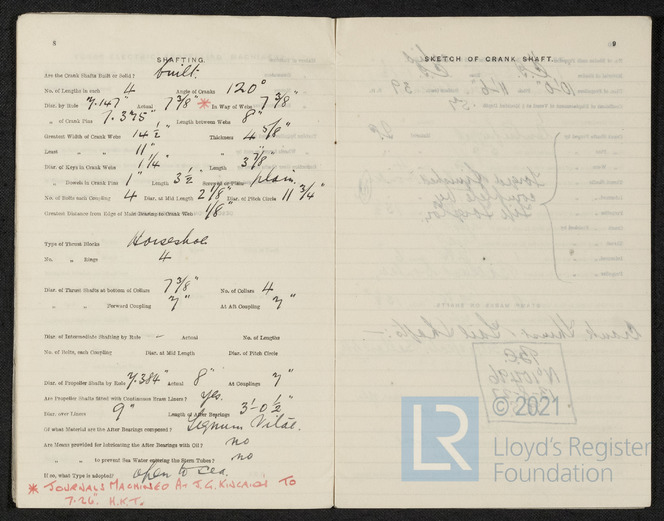 8
SHAFTING.
Are the Crank Shafts Built or Solid? built.
No. of Lengths in each 4 Angle of Cranks 120°
Diar. by Rule 7.147" Actual 7 3/8" * In Way of Webs 7 3/8"
„ of Crank Pins 7.375" Length between Webs 8"
Greatest Width of Crank Webs 14 1/2" Thickness 4 5/8"
Least „ „ 11" „ „
Diar. of Keys in Crank Webs 1 1/4" Length 3 7/8"
„ Dowels in Crank Pins 1" Length 3 1/2" Screwed or Plain plain
No. of Bolts each Coupling 4 Diar. at Mid Length 2 1/8" Diar. of Pitch Circle 11 3/4"
Greatest Distance from Edge of Main Bearing to Crank Web 1/8"
Type of Thrust Blocks Horseshoe
No. „ Rings 4
Diar. of Thrust Shafts at bottom of Collars 7 3/8" No. of Collars 4
„ „ Forward Coupling 7" At Aft Coupling 7"
Diar. of Intermediate Shafting by Rule – Actual No. of Lengths
No. of Bolts, each Coupling Diar. at Mid Length Diar. of Pitch Circle
Diar. of Propeller Shafts by Rule 7.384" Actual 8" At Couplings 7"
Are Propeller Shafts fitted with Continuous Brass Liners? yes.
Diar. over Liners 9" Length of After Bearings 3'-0 1/2"
Of what Material are the After Bearings composed? Lignum Vitae.
Are Means provided for lubricating the After Bearings with Oil? no
„ „ to prevent Sea Water entering the Stern Tubes? no
If so, what Type is adopted? open to sea.
* JOURNALS MACHINED AT J.G. KINCAIDS TO
7.26". H.K.T.
9
SKETCH OF CRANK SHAFT.
© 2021
LR
Lloyd's Register
Foundation